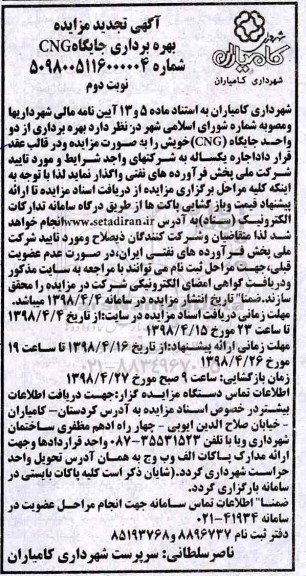 آگهی تجدید مزایده
بهره برداری جایگاه CNG
شماره ۵۰۹۸۰۰۵۱۱۶۰۰۰۰۰۴
نوبت دوم
شهر
کامیاران
شهرداری کامیاران
شهرداری کامیاران به استناد ماده ۵ و ۱۳ آیین نامه مالی شهرداریها
ومصوبه شماره شورای اسلامی شهر در نظر دارد بهره برداری از دو
واحد جایگاه (CNG) خویش را به صورت مزایده ودر قالب عقد
قرار داداجاره یکساله به شرکتهای واجد شرایط و مورد تایید
شرکت ملی پخش فرآورده های نفتی واگذار نماید لذا با توجه به
اینکه کلیه مراحل برگزاری مزایده از دریافت اسناد مزایده تا ارائه
پیشنهاد قیمت وباز کشایی پاکت ها از طریق درگاه سامانه تدارکات
الکترونیک (ستاد) به آدرس www.setadiran.ir انجام خواهد
شد لذا متقاضیان وشرکت کنندگان ذیصلاح ومورد تایید شرکت
ملی پخش فرآورده های نفتی ایران، در صورت عدم عضویت
قبلی، جهت مراحل ثبت نام می توانند با مراجعه به سایت مذکور
ودریافت گواهی امضای الکترونیکی شرکت در مزایده را محقق
سازند. ضمنا" تاریخ انتشار مزایده در سامانه ۱۳۹۸/۴/۴ میباشد.
مهلت زمانی دریافت اسناد مزایده در سایت: از تاریخ ۱۳۹۸/۴/۴
تا ساعت ۲۳ مورخ ۱۳۹۸/۴/۱۵
مهلت زمانی ارائه پیشنهاد: از تاریخ ۱۳۹۸/۴/۱۶ تا ساعت ۱۹
مورخ ۱۳۹۸/۴/۲۶
زمان بازگشایی: ساعت ۹ صبح مورخ ۱۳۹۸/۴/۲۷
اطلاعات تماس دستگاه مزایده گزار: جهت دریافت اطلاعات
بیشتر در خصوص اسناد مزایده به آدرس کردستان- کامیاران
- خیابان صلاح الدین ایوبی - چهار راه ادهم مظفری ساختمان
شهرداری ویا با تلفن ۳۵۵۳۱۵۲۳-۰۸۷ واحد قراردادها وجهت
ارائه مدارک پاکات الف وب وج به همان آدرس تحویل واحد
حراست شهرداری گردد. (شایان ذکر است کلیه پاکات بایستی در
سامانه بارگزاری گردد.
ضمنا" اطلاعات تماس سامانه جهت انجام مراحل عضویت در
سامانه ۴۱۹۳۴-۰۲۱
دفتر ثبت نام ۸۸۹۶۷۳۷ و ۸۵۱۹۳۷۶۸
ناصر سلطانی: سرپرست شهرداری کامیاران